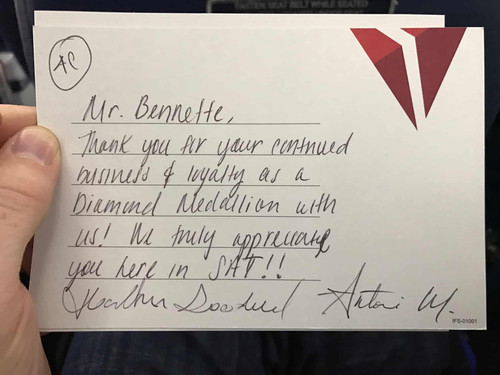 FASTEN SEAT BELT WHILE SEATED
4C
Mr. Bennette,
Thank you for your continued
business & loyalty as a
Diamond Medallion with
us! We truly appreciate
you here in SAT!!
IFS-01001